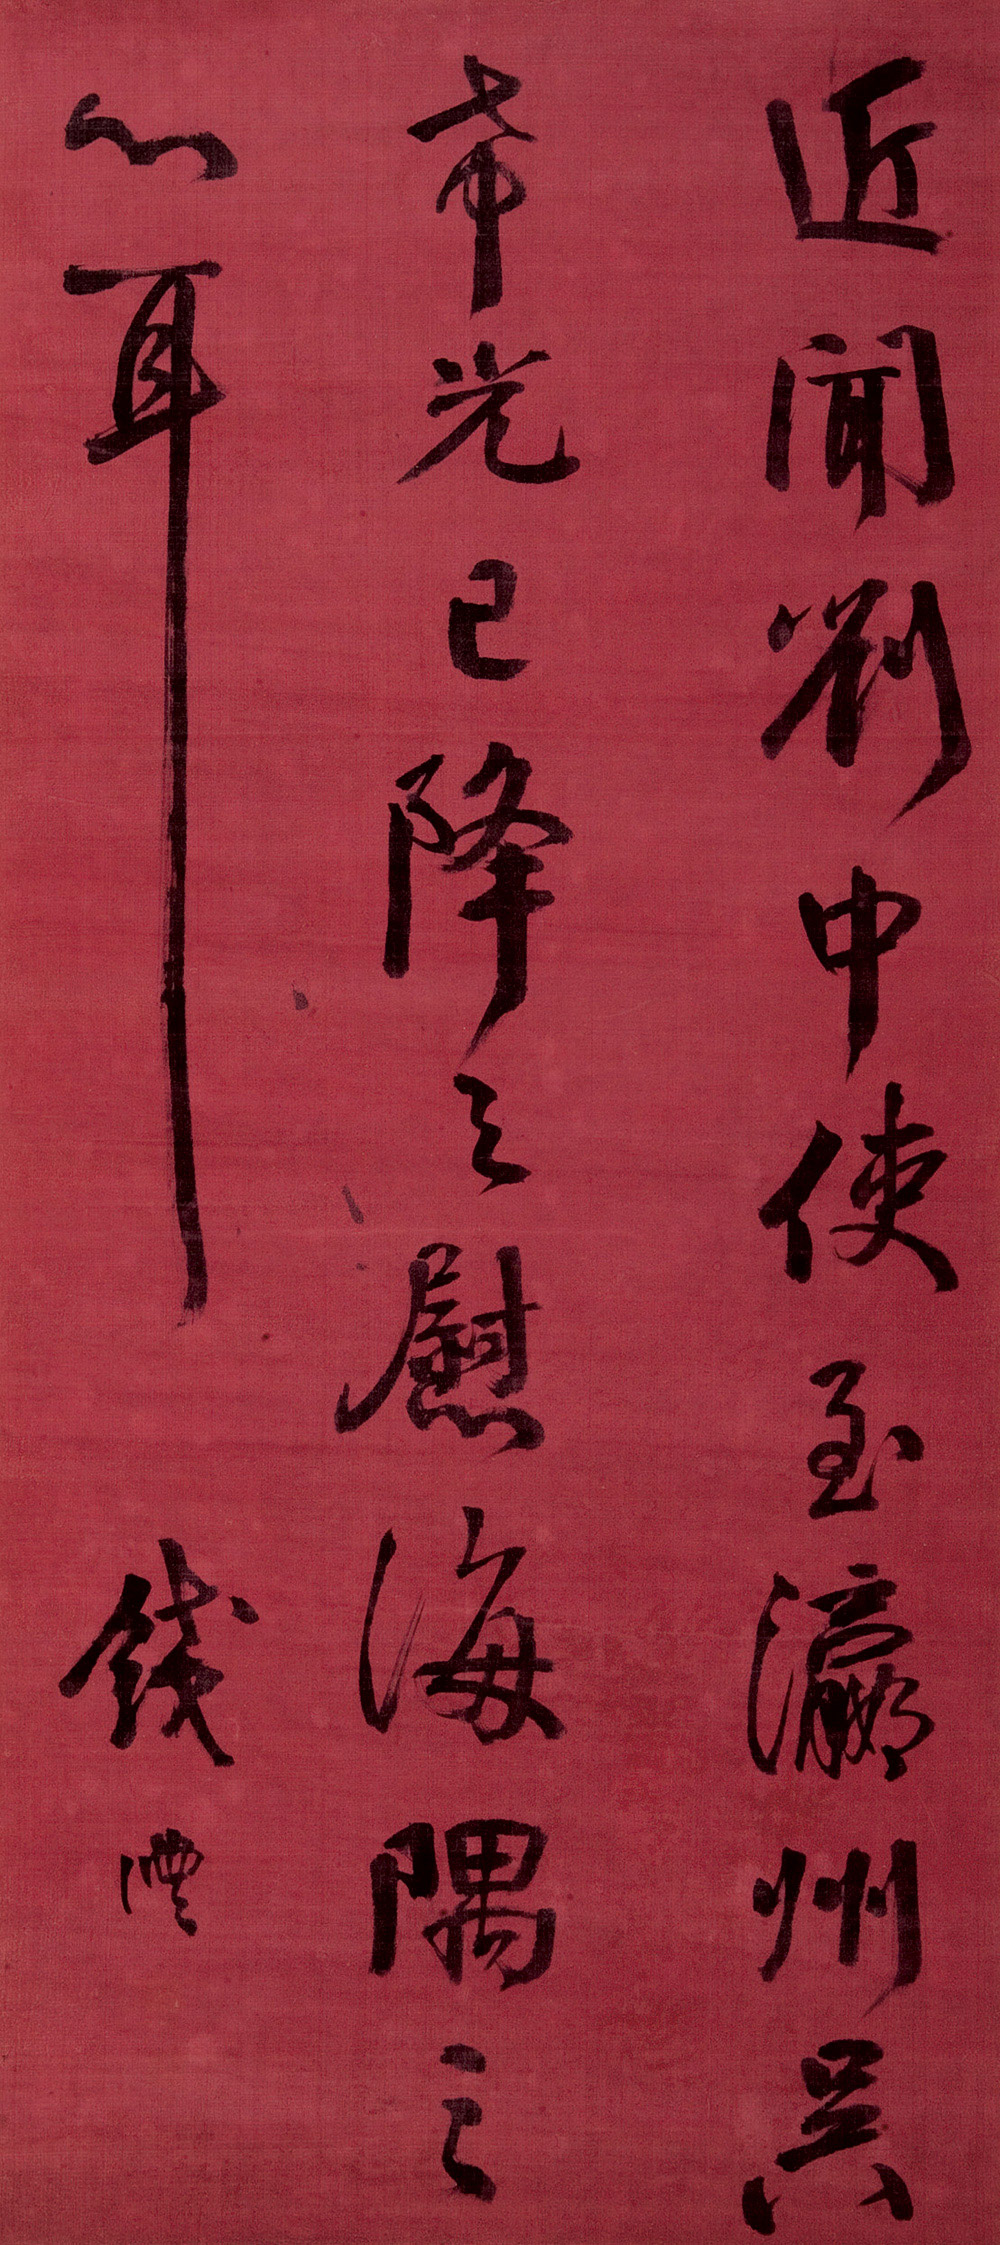 近聞劉中使至瀛州吳
希光已降之慰海隅之
心耳 錢灃